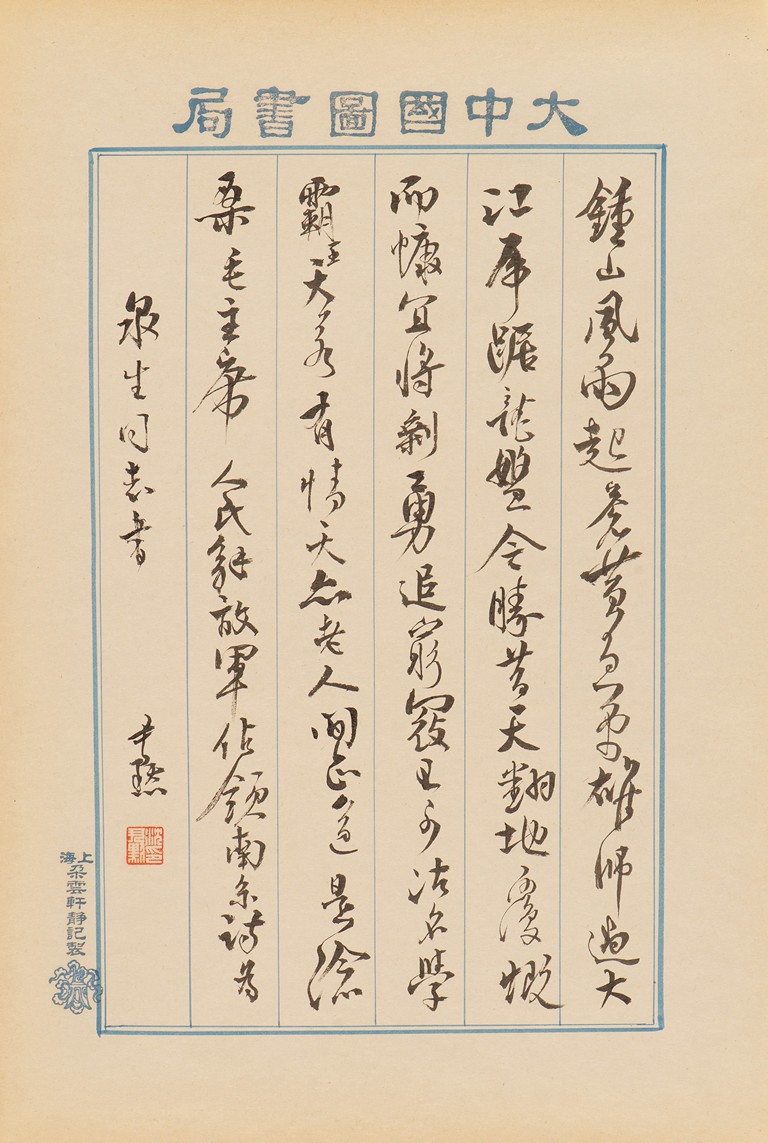 大中國圖書局
鍾山風雨起蒼黃百萬雄師過大
江虎踞龍盤今勝昔天翻地覆慨
而慷宜將剩勇追窮寇不可沽名學
霸王天若有情天亦老人間正道是滄
桑毛主席 人民解放軍佔領南京詩為
泉生同志書 尹默
沈尹默印
上海朵雲軒靜記製